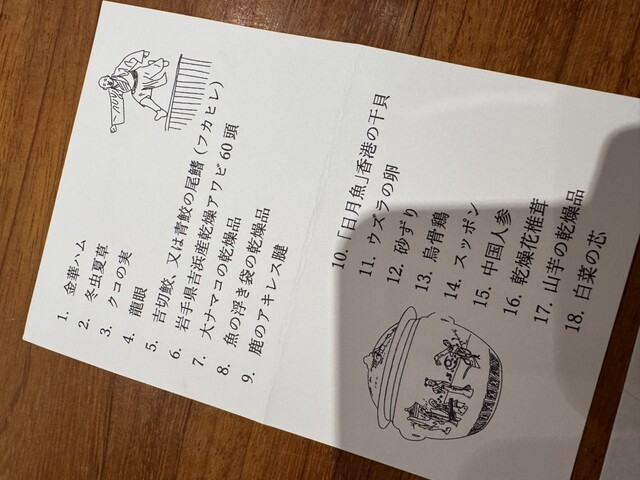 1. 金華ハム
2. 冬虫夏草
3. クコの実
4. 龍眼
5. 吉切鮫、又は青鮫の尾鰭（フカヒレ）
6. 岩手県吉浜産乾燥アワビ 60 頭
7. 大ナマコの乾燥品
8. 魚の浮き袋の乾燥品
9. 鹿のアキレス腱
10. 「日月魚」香港の干貝
11. ウズラの卵
12. 砂ずり
13. 烏骨鶏
14. スッポン
15. 中国人参
16. 乾燥花椎茸
17. 山芋の乾燥品
18. 白菜の芯